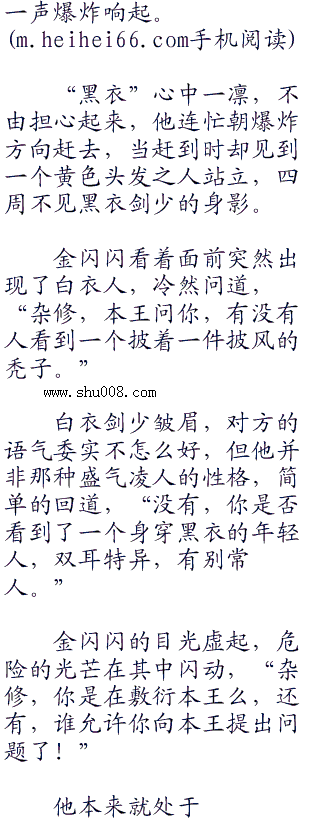 一声爆炸响起。
(m.heihei66.com手机阅读)
“黑衣”心中一凛，不
由担心起来，他连忙朝爆炸
方向赶去，当赶到时却见到
一个黄色头发之人站立，四
周不见黑衣剑少的身影。
金闪闪看着面前突然出
现了白衣人，冷然问道，
“杂修，本王问你，有没有
人看到一个披着一件披风的
秃子。”
www.shu008.com
白衣剑少皱眉，对方的
语气委实不怎么好，但他并
非那种盛气凌人的性格，简
单的回道，“没有，你是否
看到了一个身穿黑衣的年轻
人，双耳特异，有别常
人。”
金闪闪的目光虚起，危
险的光芒在其中闪动，“杂
修，你是在敷衍本王么，还
有，谁允许你向本王提出问
题了！”
他本来就处于